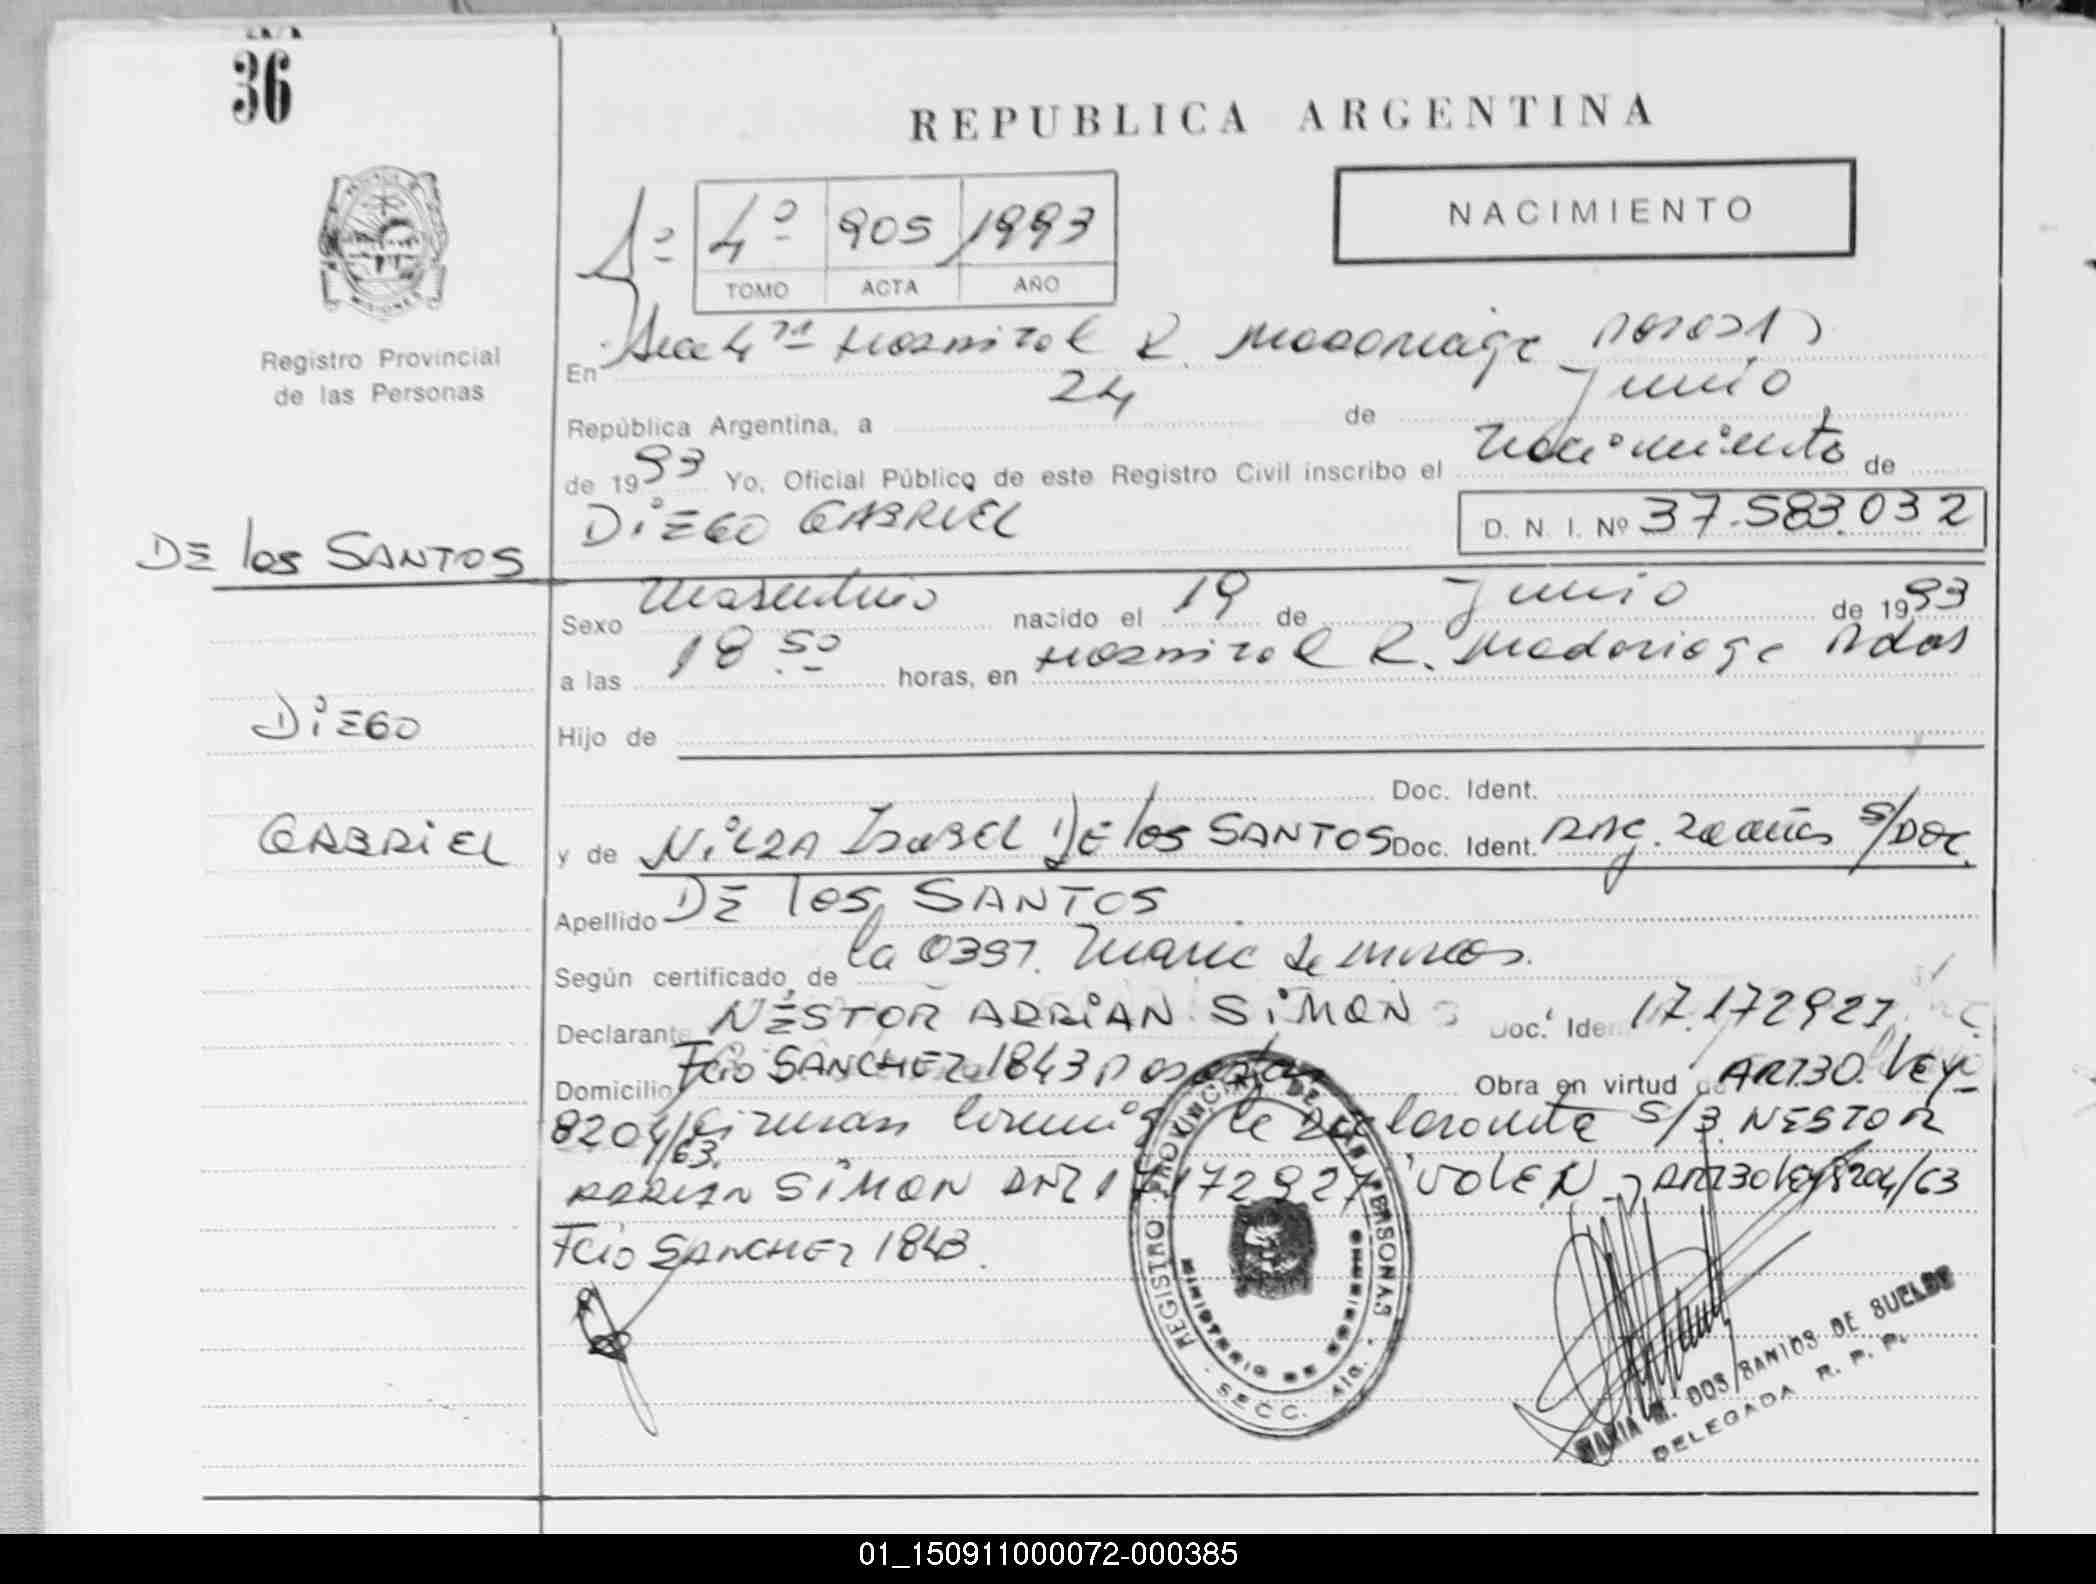 36
REPUBLICA ARGENTINA
NACIMIENTO
1º
4º 905 1993
TOMO ACTA AÑO
Registro Provincial
de las Personas
En Secc 4ta Hospital R. Madariaga Posadas
República Argentina, a 24 de Junio
de 1993 Yo, Oficial Público de este Registro Civil inscribo el Nacimiento de
DE los SANTOS
DiEGO GABRIEL
D. N. I. Nº 37.583.032
Sexo Masculino nacido el 19 de Junio de 1993
a las 18 50 horas, en Hospital R. Madariaga Pdas
DiEGO
Hijo de
Doc. Ident.
GABRiEL
y de NiLZA IsaBEL DE los SANTOS Doc. Ident. ARg. 20 años s/DOC.
Apellido DE los SANTOS
Según certificado de la 0397. Maria de
Declarante NÉSTOR ADRiAN SiMON Doc. Iden 17.172927
Domicilio Fcio SANCHEZ 1843 Posadas Obra en virtud de ART30. LEY
8204/63. Firman el declarante NESTOR
ADRIAN SiMON DNI 17172927 ART30 ley 8204/63
Fcio SANCHEZ 1843.
REGISTRO PROVINCIAL DE LAS PERSONAS
MINISTERIO DE GOBIERNO
SECC. 4ta.
MARIA M. DOS SANTOS DE SUELDO
DELEGADA R. P. P.
01_150911000072-000385